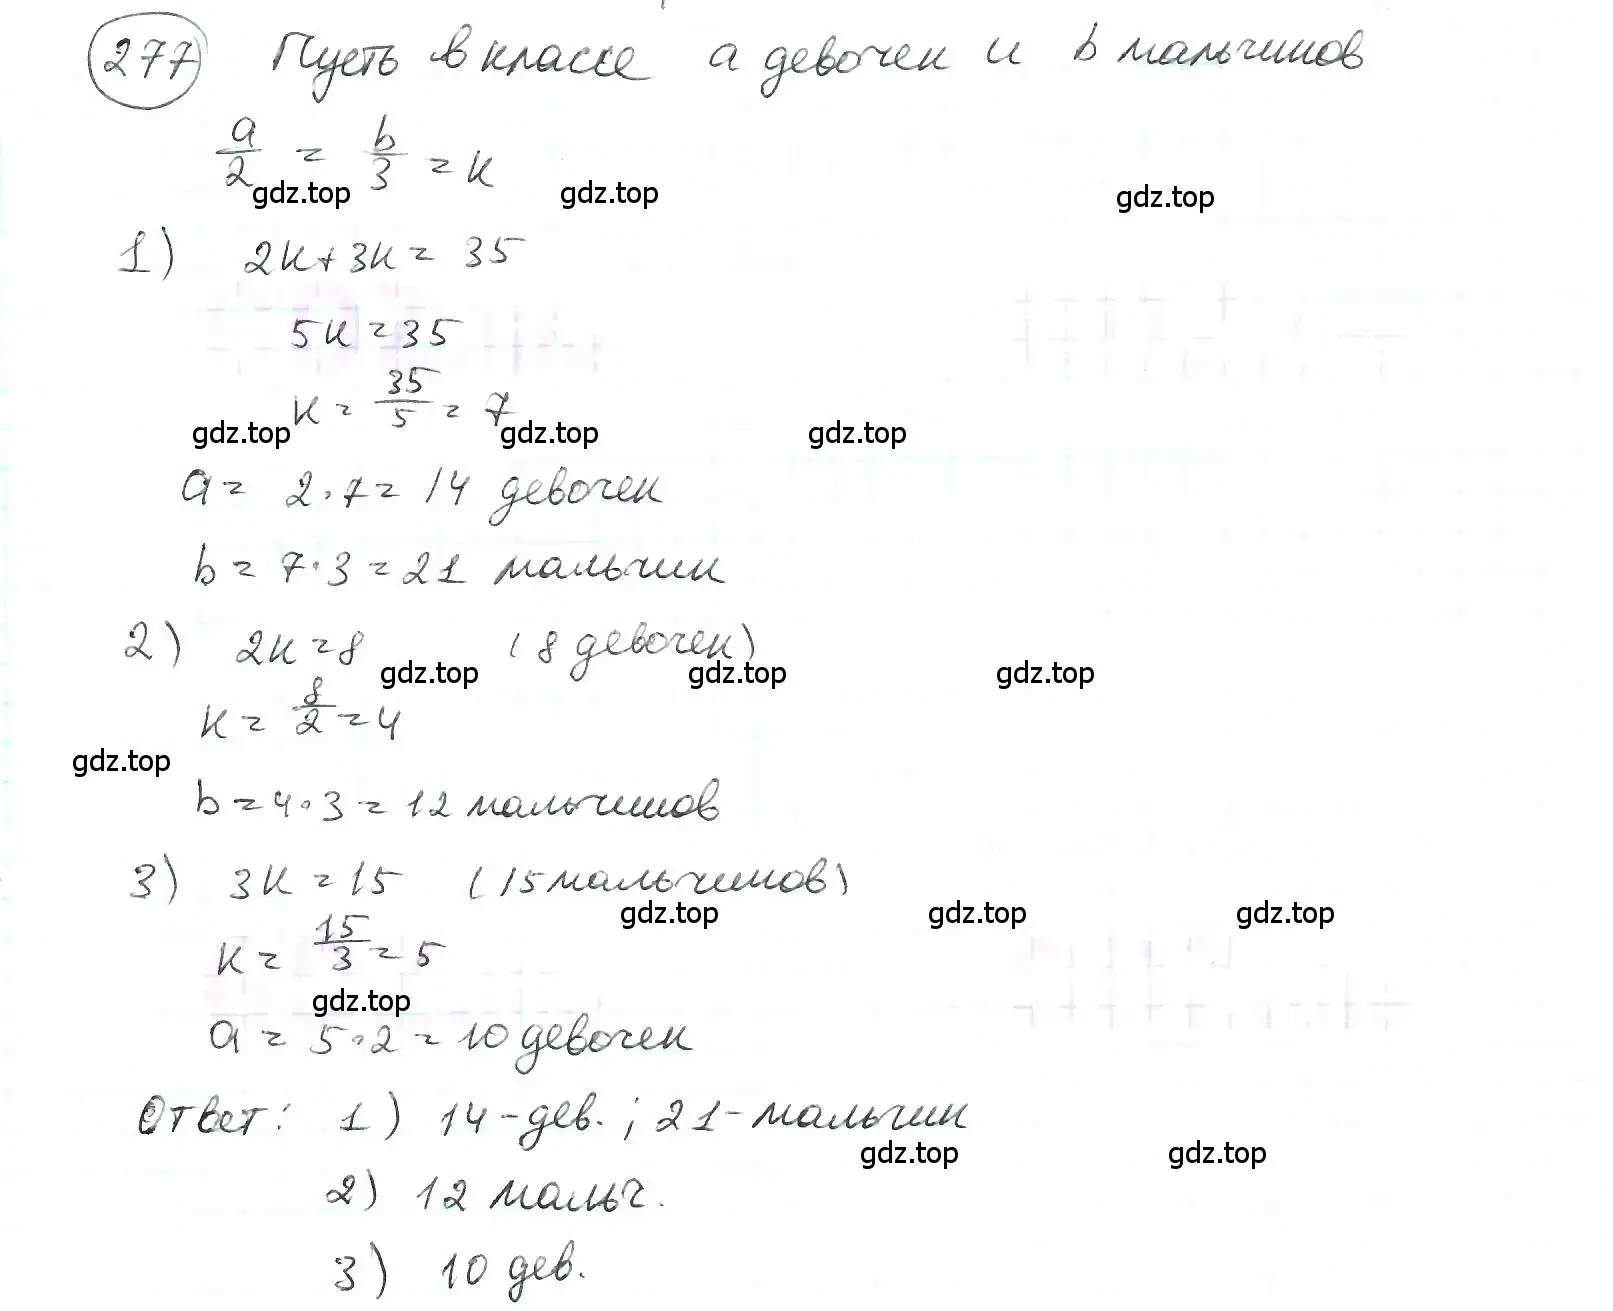 277 Пусть в классе a девочек и b мальчиков
a/2 = b/3 = k
gdz.top gdz.top gdz.top
1) 2k+3k = 35
5k = 35
k = 35/5 = 7
gdz.top gdz.top gdz.top
a = 2·7 = 14 девочек
b = 7·3 = 21 мальчик
2) 2k = 8 (8 девочек)
gdz.top gdz.top gdz.top
k = 8/2 = 4
gdz.top
b = 4·3 = 12 мальчиков
3) 3k = 15 (15 мальчиков)
gdz.top gdz.top gdz.top
k = 15/3 = 5
gdz.top
a = 5·2 = 10 девочек
Ответ: 1) 14-дев.; 21-мальчик
gdz.top gdz.top
2) 12 мальч.
3) 10 дев.